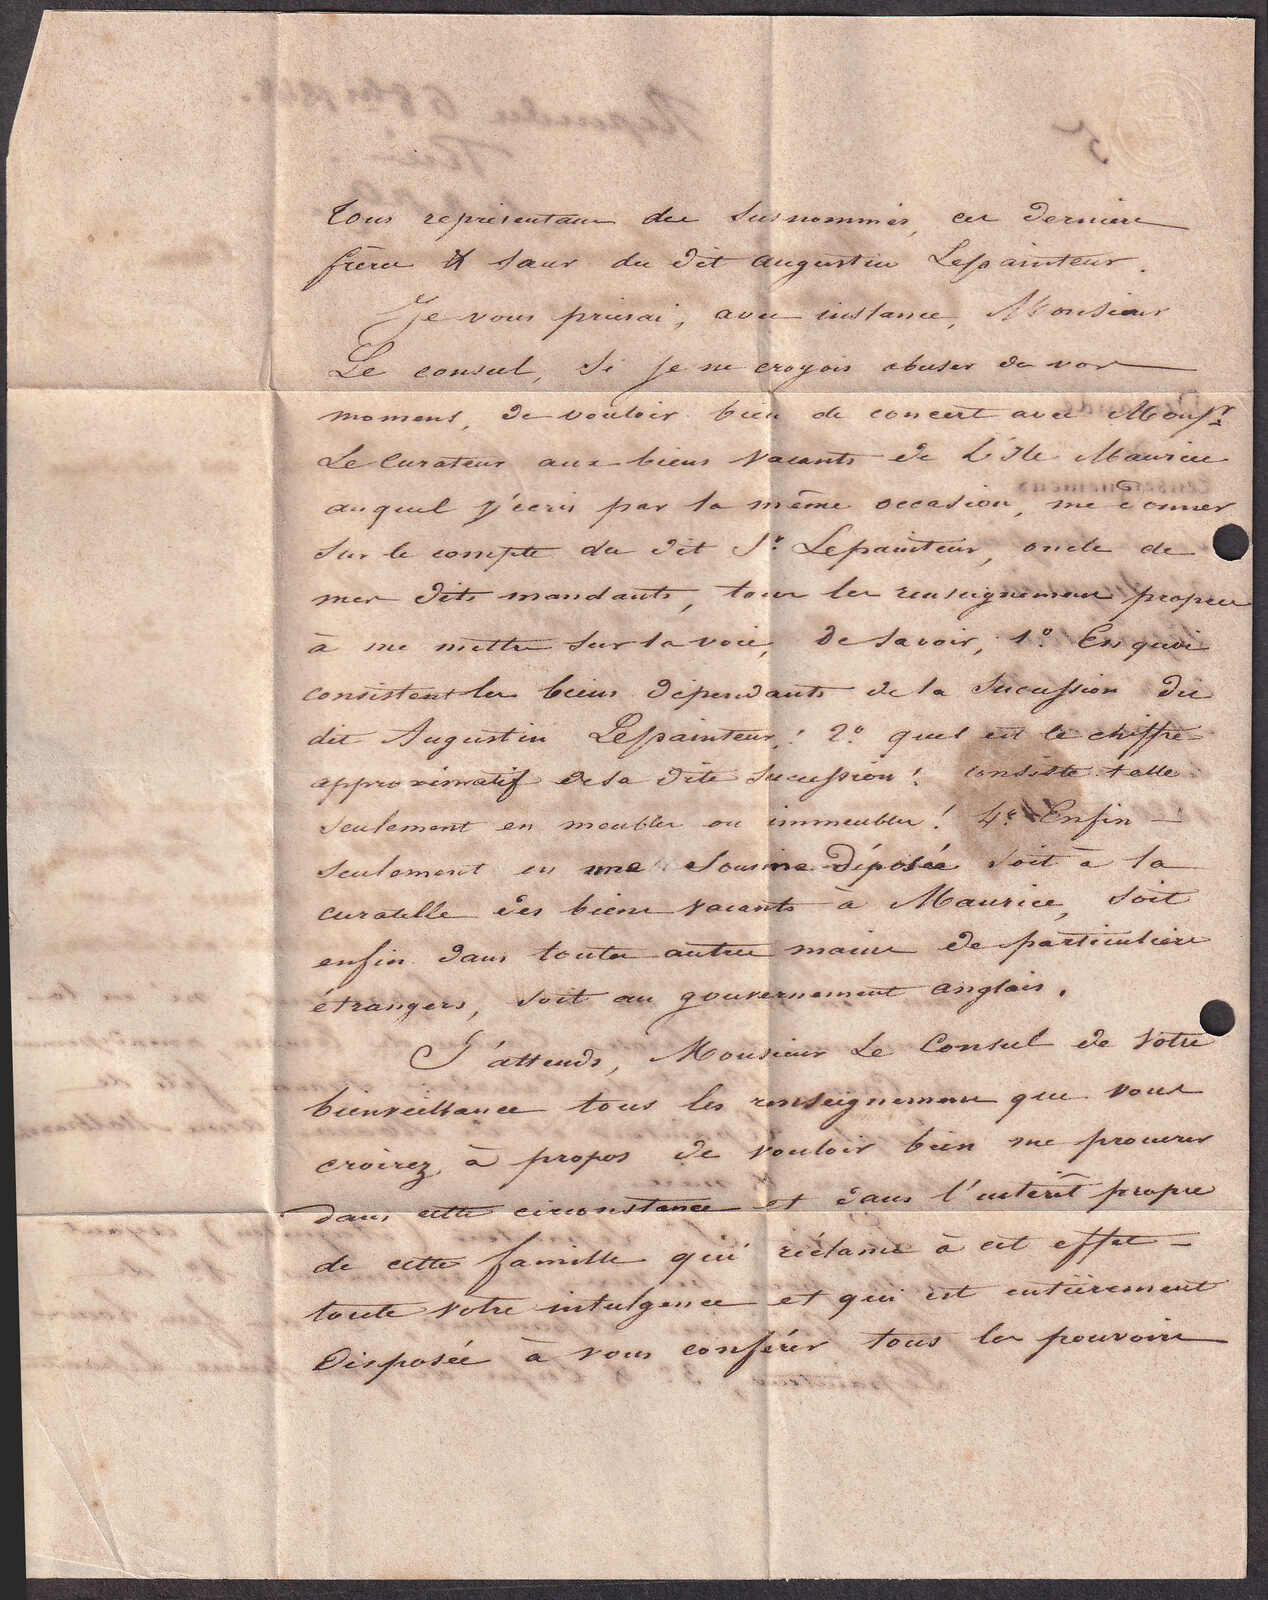 tous représentans des susnommés, ces derniers
frères & sœur du dit augustin Lepainteur.
Je vous prierai, avec instance, Monsieur
Le consul, si je ne croyois abuser de vos
momens, de vouloir bien de concert avec Monsr.
Le Curateur aux biens vacants de L'Ile Maurice
auquel j'écris par la même occasion, me donner
sur le compte du dit Sr. Lepainteur, oncle de
mes dits mandants, tous les renseignemens propres
à me mettre sur la voie, de savoir, 1o. En quoi
consistent les biens dépendants de la succession du
dit Augustin Lepainteur! 2o. quel est le chiffre
approximatif de sa dite succession! consiste telle
seulement en meubles ou immeubles! 4o. Enfin
seulement en une somme déposée soit à la
curatelle des biens vacants à Maurice, soit
enfin dans toutes autres mains de particuliers
étrangers, soit au gouvernement anglais.
J'attends, Monsieur Le Consul de votre
bienveillance tous les renseignemens que vous
croirez à propos de vouloir bien me procurer
dans cette circonstance et dans l'interêt propre
de cette famille qui réclame à cet effet
toute votre intulgence et qui est entièrement
disposée à vous conférer tous les pouvoirs